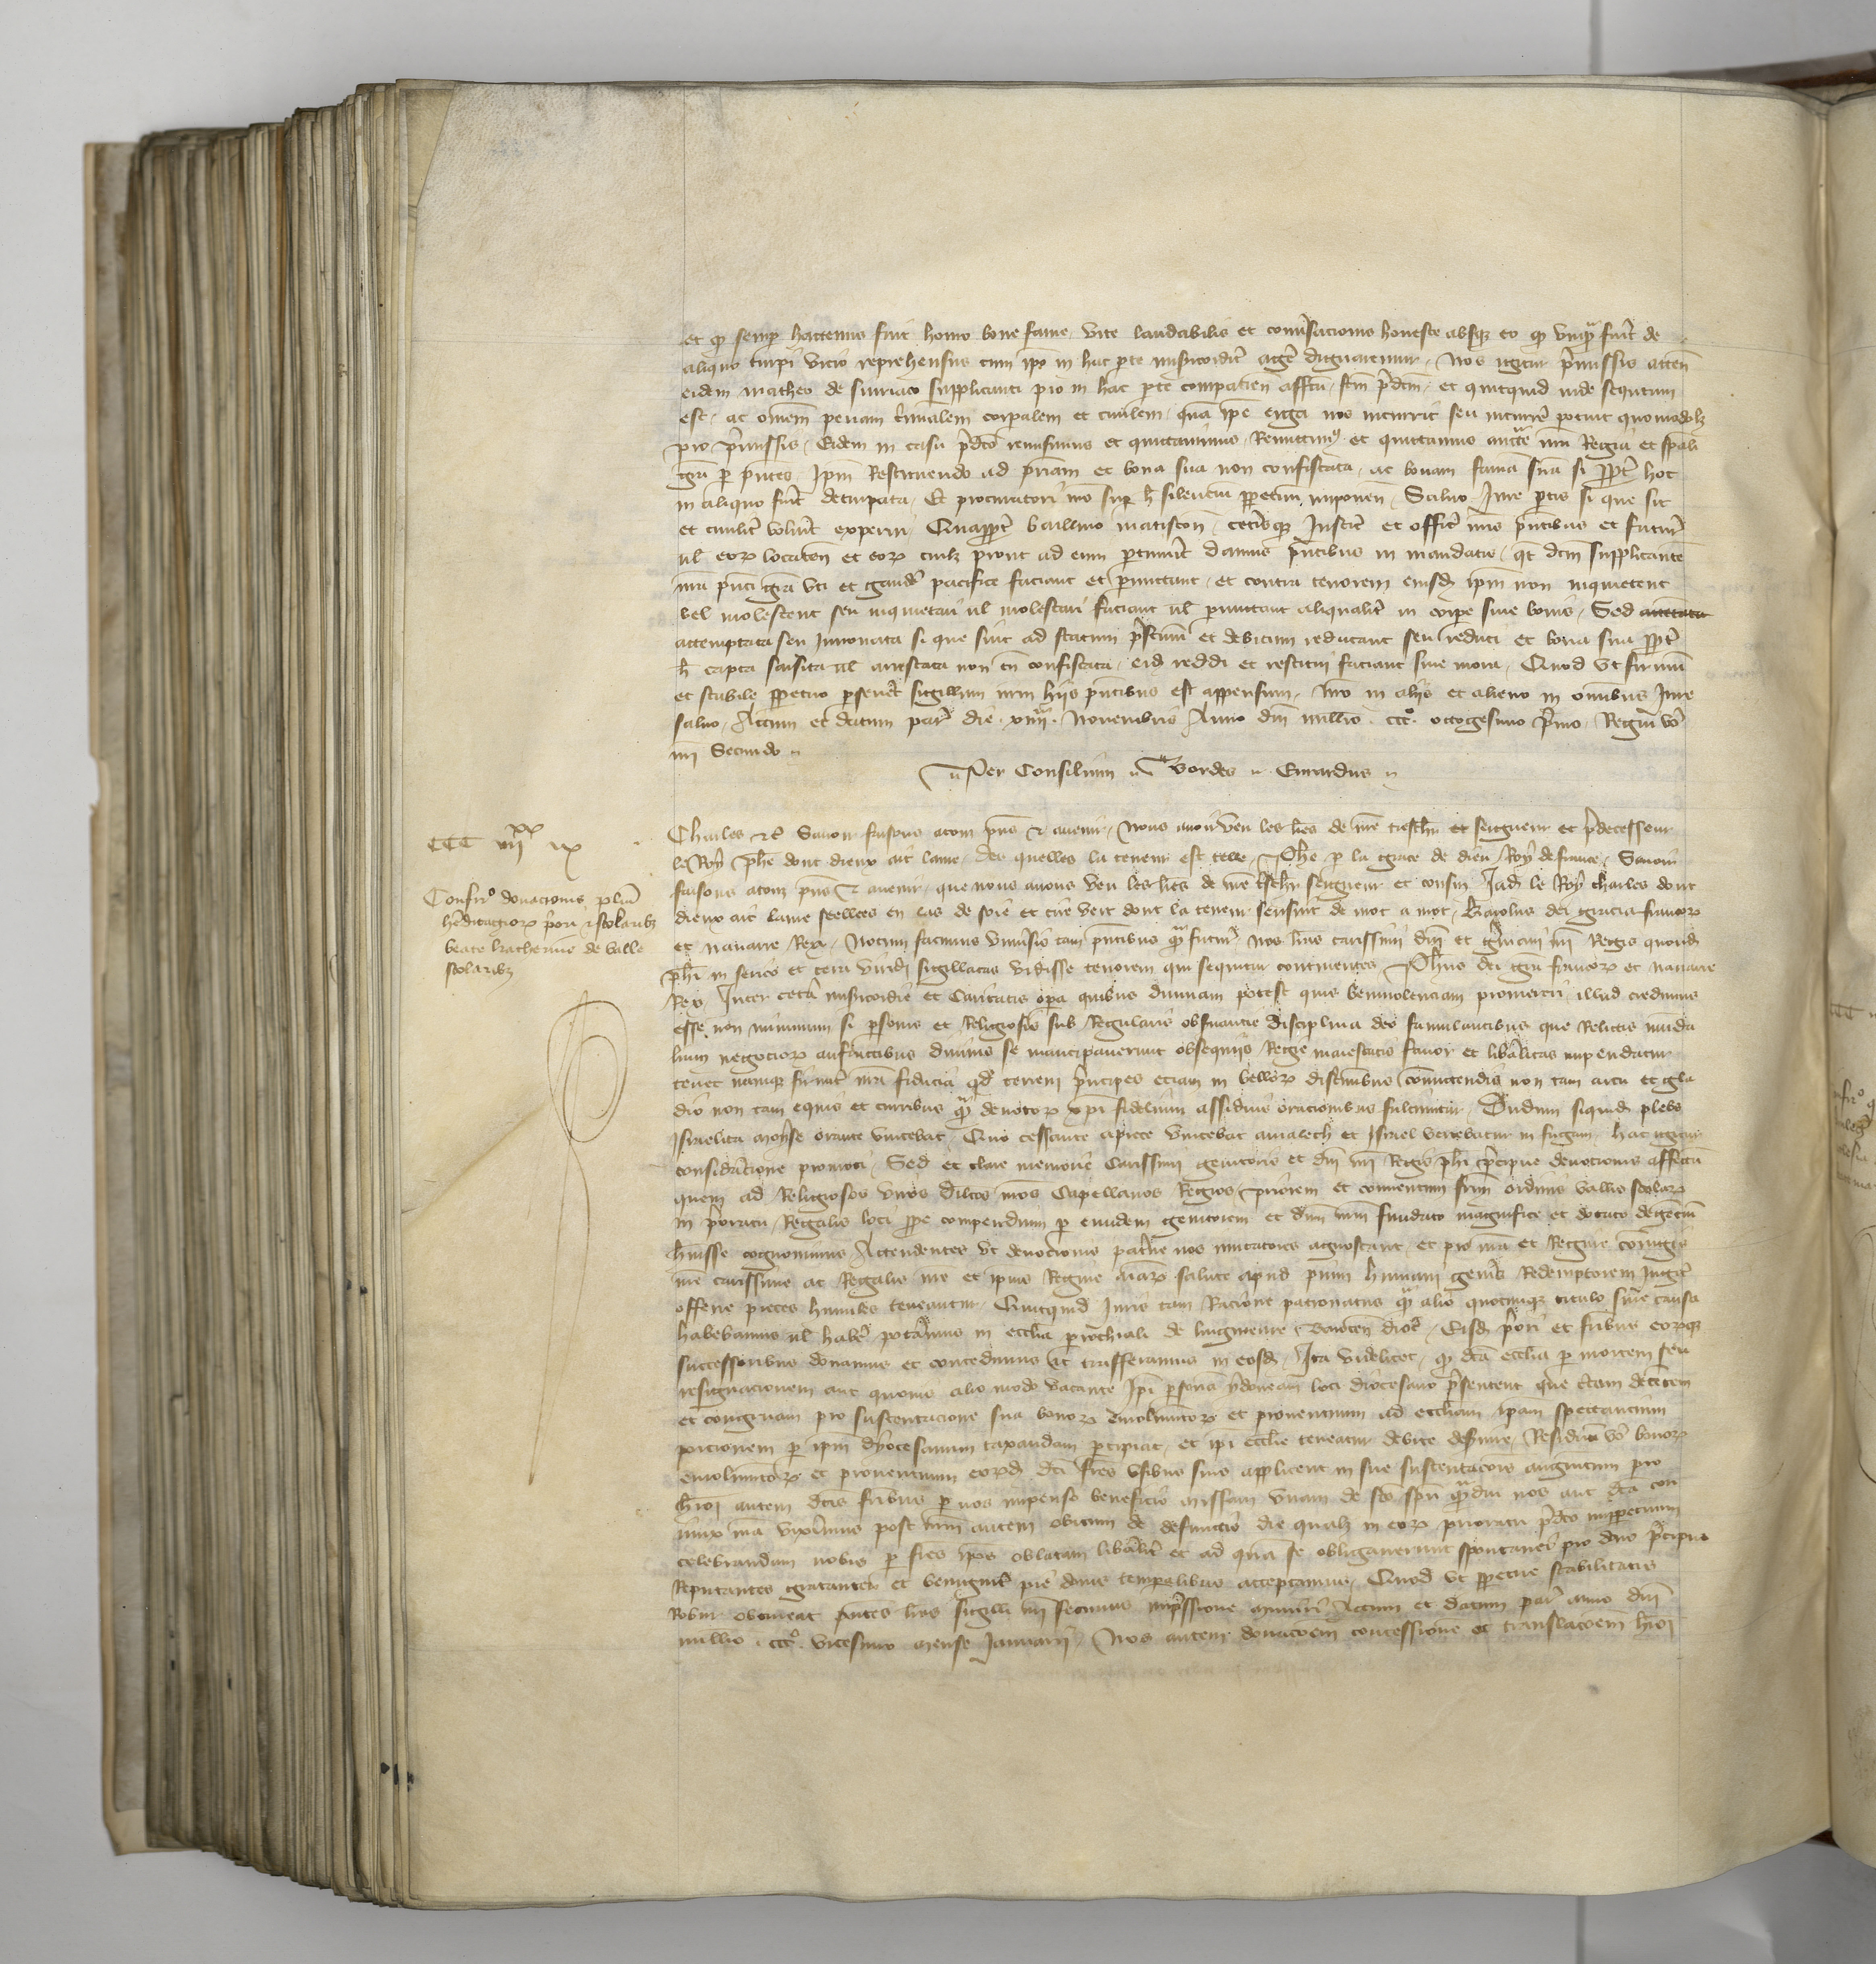 et qͥ semꝑ hactenus fuit homo bone fame vite laudabilis et conv̉sacionis honeste absqꝫ eo qͥ vnqͣ fu͛it de
aliquo turpi vicio reprehensus cum ip̄o in hac ꝑte misericordit̉ ag̉e dignaremur. Nos igitur p̉missis atten̄
eidem matheo de supplicanti pio in hac ꝑte compacien̄ aff̄cu. fc̄m p̉dc̄m. et quitquid inde sequtum
est. ac om̄em penam c̉mīalem corꝑalem et ciuilem. quā ip̄e erga nos incurrit seu incurr̉e potuit quomodolꝫ
pro p̉missis. Eidem in casu p̉dc̄o remisimus et quittauimus. Remittimꝰ et quittamus auct̄te nr̄a Regia et sp̄ali
gr̄a ꝑ p̄ntes. Ip̄m Restituendo ad pr̄iam et bona sua non confiscata. ac bonam famā suā si ꝓpt̉ hoc
in aliquo fu͛it deturpata. Et procuratori nr̄o suꝑ h̄ silencium ꝑpetuū imponen̄. Saluo Iure ꝑtis si que sit
et ciuilit̉ volu͛it experiri. Quapp̄t̉ baillivo matiscon̄ cet̉isqꝫ Iustic̉ et offic̉ nr̄is p̄ntibus et futur̉
ul̄ eoꝝ locaten̄ et eoꝝ cuilꝫ prout ad eum ꝑtinu͛it damus p̄ntibus in mandatis. qͭ dc̄m supplicantē
nr̄a p̄nti gr̄a vti et gaud̉e pacifice faciant et ꝑmittant. et contra tenorem eiusd̄ ip̄m non inquietent
vel molestent seu inquietari ul̄ molestari faciant ul̄ ꝑmittant aliqualit̉ in corꝑe siue bonis. Sed
attemptata seu Innouata si que sint ad statum p̉stinū et debitum reducant seu reduci et bona sua ꝓpt̉
h̄ capta saisita ul̄ arrestata non tn̄ confiscata. eid̄ reddi et restitui faciant sine mora. Quod vt firmū
et stabile ꝑpetuo ꝑseu͛et sigillum nr̄m hiis p̄ntibus est appensum. Nr̄o in aliis et alieno in om̄ibus Iure
saluo. Actum et datum par̉ die xiiijᵃ Nouembris Anno dn̄i mill̄io. cccᵒ. octogesimo p̉mo. Regni vỏ
nr̄i Secundo.
Per Consilium. Bordes. Euuardus
CCC iiijˣˣ ix
Confirᵒ donacionis pluriū
heditagioꝝ p̉ori et scolaribꝫ
beate katherine de valle
scolaribꝫ
Charles &c̉ Sauoir faisons atous p̄ns et auenir. Nous auoir veu les lr̄es de nr̄e treschr̄ et seigneur et p̉decesseur
le Roy Ph̄e dont dieux ait lame. Des quelles la teneur est telle. Ph̄e ꝑ la grace de dieu Roy de france. Sauoir
faisons atous p̄ns et auenir. que nous auons veu les lr̄es de nr̄e tschr̄ seigneur et cousin Iad̄ le Roy charles dont
dieux ait lame seellees en las de soie et cire vert dont la teneur sensuit de mot a mot. Karolus dei gracia francoꝝ
et nauarre Rex. Notum facimus vniu͛sis tam p̄ntibus qͣ futur̉. Nos lr̄as carissimi dn̄i et germani nr̄i Regis quond̄
ph̄i in serico et cera viridi sigillatas vidisse tenorem qui sequitur continentes. Ph̄us dei gr̄a francoꝝ et nauarre
Rex. Inter cet̉a misericordie et Caritatis oꝑa quibus diuinam potest quis beniuolenciam promereri illud credimus
esse non minimum si ꝑsonis et Religiosis sub Regularis obs̉uantie disciplina deo famulantibus que Relictis mūda
lium negocioꝝ anfractibus diuinis se mancipauerunt obsequiis Regie maiestatis fauor et lib̉alitas impendatur
tenet namqꝫ firmit̉ nr̄a fiducia qd̄ terreni p̉ncipes eciam in belloꝝ discriminibus non tam arcu et gla
dio non tam equis et curribus qͣ deuotoꝝ xp̄i fidelium assiduis oracionibus fulciuntur. Dudum siquid̄ plebs
Israelitica Moyse orante vincebat. Quo cessante aprece vincebat amalech et Israel vertebatur in fugam. hac igitur
consid̉acione promoti. Sed et clare memorie Carissimi genitoris et dn̄i nr̄i Regis ph̄i p̉cipue deuocionis affectū
quem ad Religiosos viros dilc̄os nr̄os Capellanos Regios priorem et conuentum fr̄um ordinis vallis scolaꝝ
in p̉oratu Regalis loci ꝓpe compendium ꝑ eundem genitorem et dn̄m nr̄m fundato magnifice et dotato degenciū
h̄uisse cognouimus. Attendentes vt deuocionis pat̉ne nos imitatores agnoscant. et pro nr̄a et Regine coniugis
nr̄e carissime ac Regalis nr̄e et ipius Regine aīaꝝ salute apud pium humani gen̉is Redemptorem Iugit̉
offerre preces humiles teneantur. Quicquid Iuris tam Racione patronatus qͣ alio quocumqꝫ titulo siue causa
habebamus ul̄ hab̉e poteramus in ecclīa parrochiali de Baiocen̄ dioc̉. Eisd̄ p̉ori et fr̄ibus eoꝝqꝫ
successoribus donamus et concedimus ac transferimus in eosd̄. Ita videlicet. qͥ dc̄a ecclīa ꝑ mortem seu
resignacionem aut quouis alio modo vacante Ip̄i ꝑsonā ydoneam loci diocesano p̉sentent que certam decentem
et congruam pro sustentacione sua bonoꝝ emolumentoꝝ et prouentuum ad eccl̄iam ipam spectancium
porcionem ꝑ ip̄m dyocesanum taxandam ꝑcipiat. et ip̄i eccl̄ie teneatur debite des̉uire. Residuū vỏ bonoꝝ
emolumentoꝝ et prouentuum eoꝝd̄ dc̄i fr̄es vsibus suis applicent in sue sustentacōis augmentum pro
h̄moi autem dc̄is fr̄ibus ꝑ nos impenso beneficio missam vnam de sc̄o sp̄u qͣdiu nos aut dc̄a con
iunx nr̄a vixerimus post nr̄m autem obitum de defunctis die qualꝫ in eoꝝ prioratu p̉dc̄o imꝑpetuum
celebrandam nobis ꝑ fr̄es ip̄os oblatam lib̉alit̉ et ad quā se obligauerunt spontanei pro dono p̉cipuo
Reputantes gratanter et benignit̉ pre donis temporalibus acceptamus. Quod vt ꝑpetue stabilitatis
Robur obtineat p̄ntes lr̄as sigilli nr̄i fecimus imp̉ssione muniri. Actum et datum par̉ anno dn̄i
mill̄io. cccᵒ. vicesimo mense Ianuarii. Nos autem donacōem concessionē et translacōem h̄moi